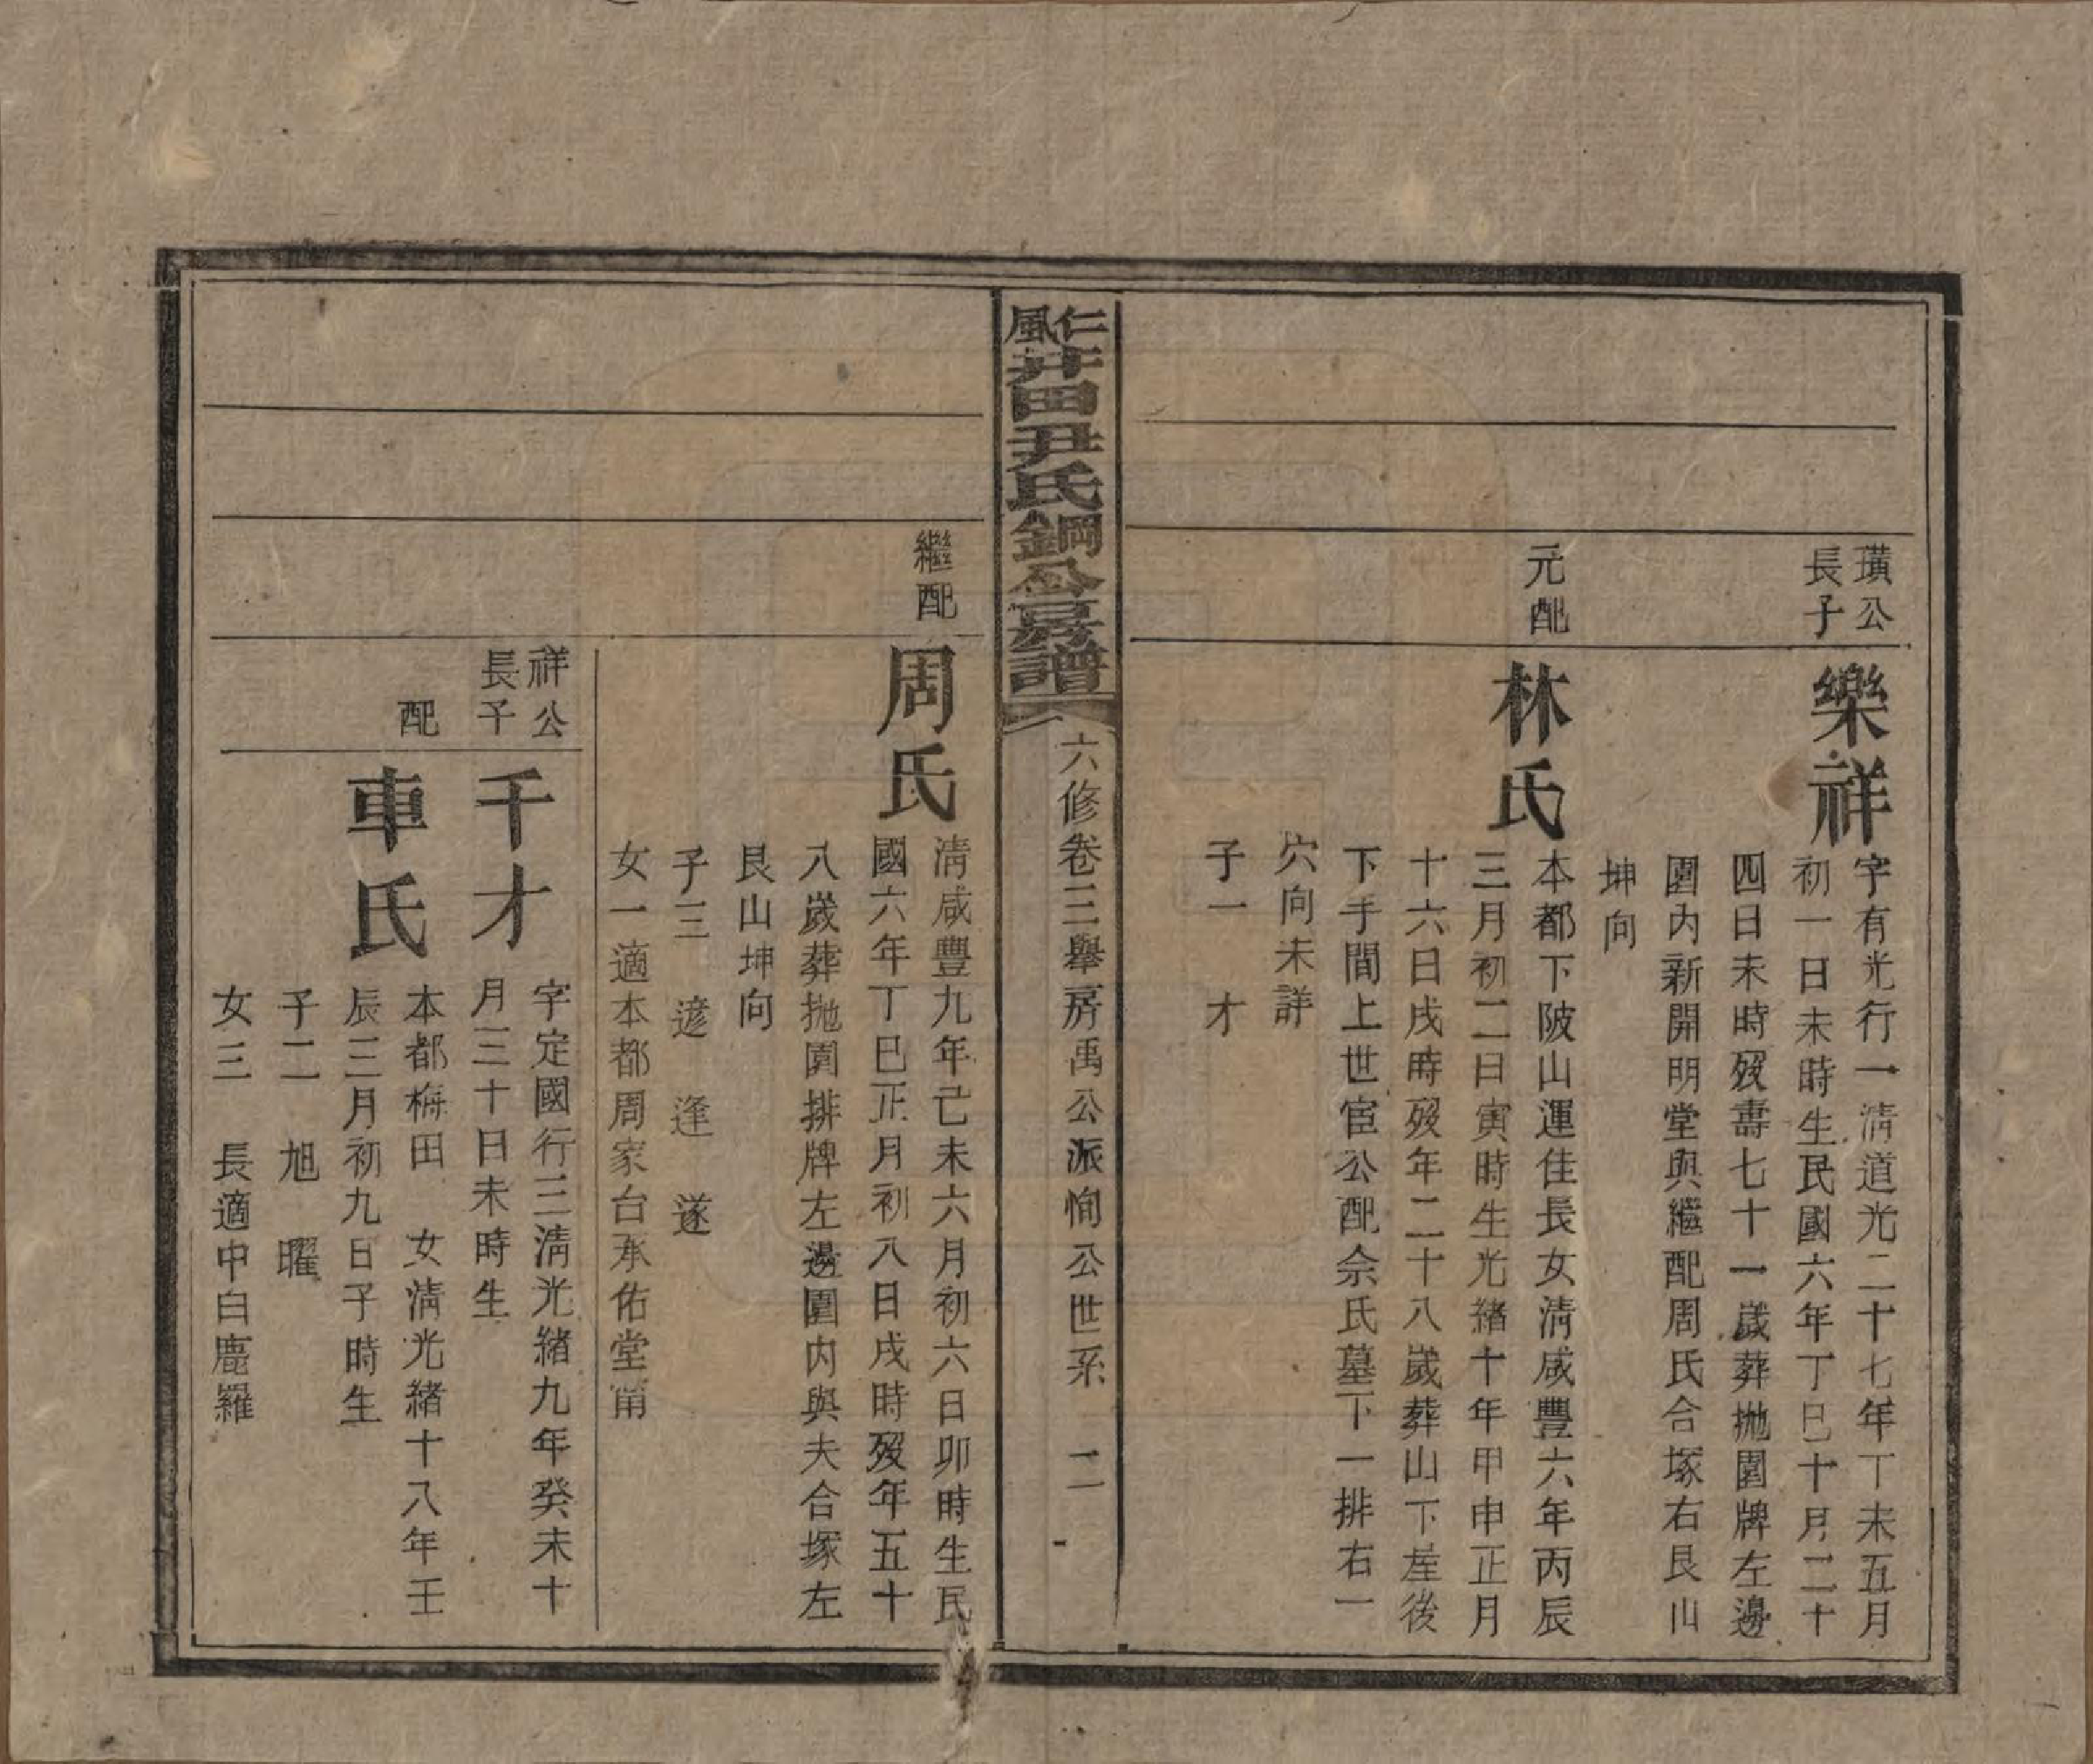 璜公
長子
樂祥
字有光行一清道光二十七年丁未五月
初一日未時生民國六年丁巳十月二十
四日未時歿壽七十一歲葬拋園牌左邊
園內新開明堂與繼配周氏合塚右艮山
坤向
元配
林氏
本都下陂山運佳長女清咸豐六年丙辰
三月初二日寅時生光緒十年甲申正月
十六日戌時歿年二十八歲葬山下垤後
下手間上世宦公配余氏墓下一排右一
穴向未詳
子一　才
仁風井田尹氏鋼公房譜
六修卷三舉房禹公派恂公世系　二
繼配
周氏
清咸豐九年己未六月初六日卯時生民
國六年丁巳正月初八日戌時歿年五十
八歲葬拋園排牌左邊園內與夫合塚左
艮山坤向
子三　遴　逢　遂
女一適本都周家台承佑堂甭
祥公
長子
千才
字定國行三清光緒九年癸未十
月三十日未時生
配
車氏
本都梅田　女清光緒十八年壬
辰三月初九日子時生
子二　旭　曜
女三　長適中白鹿羅